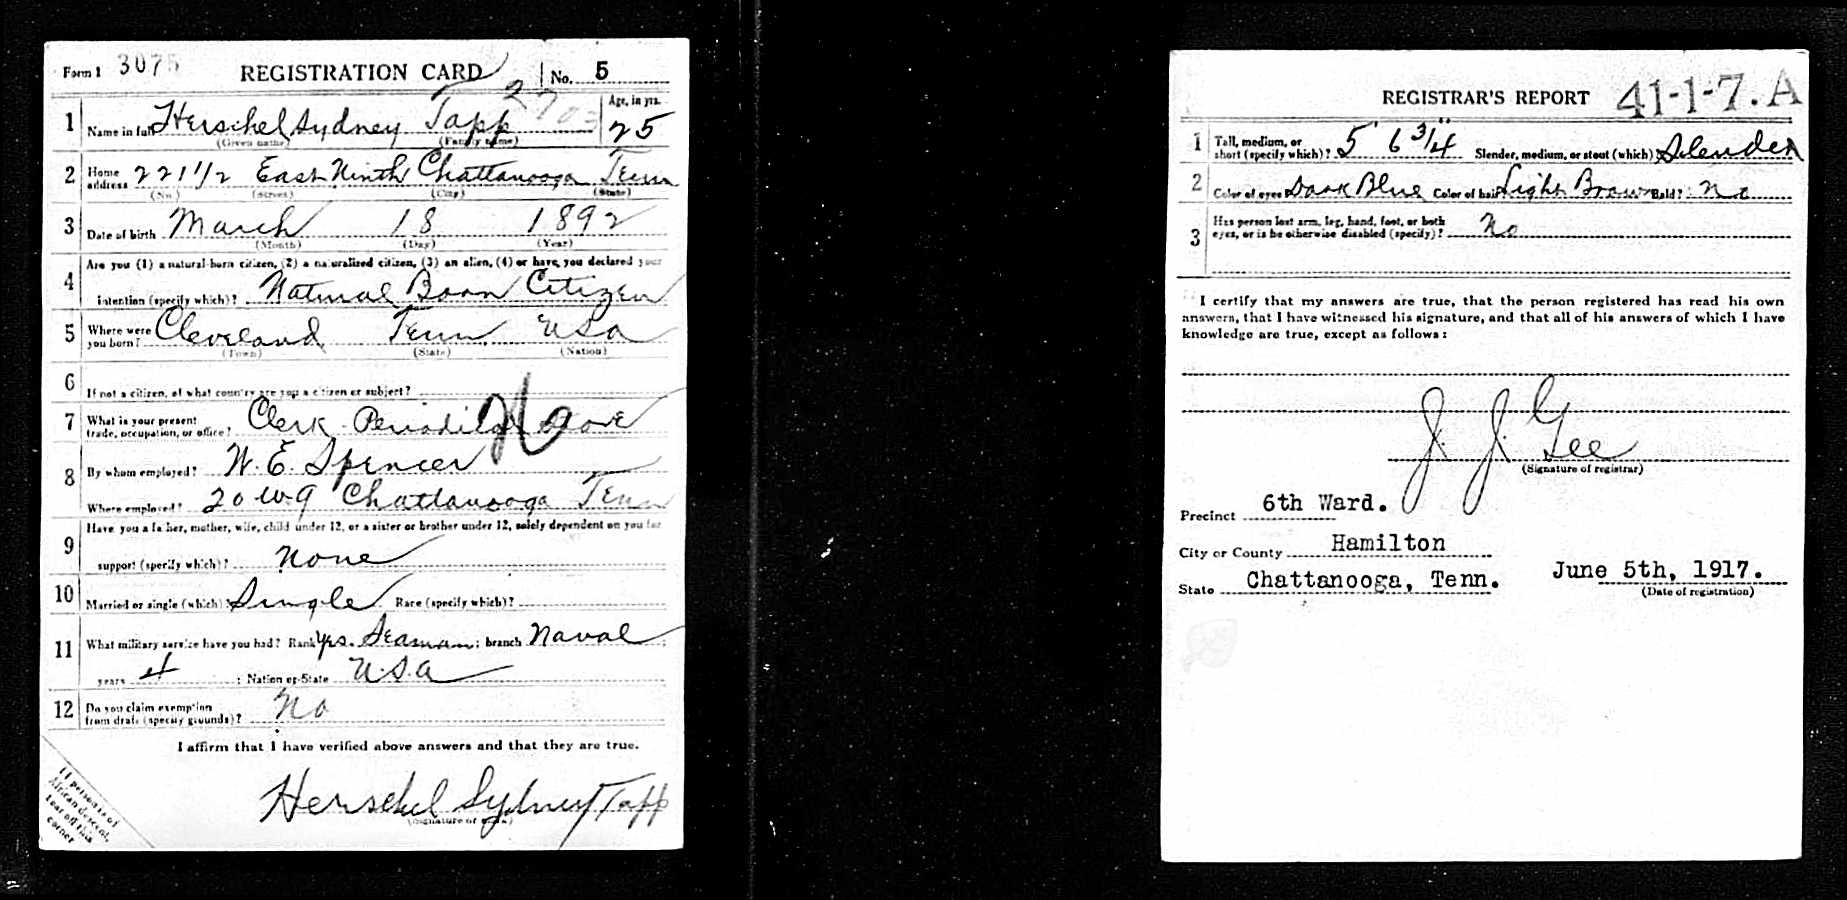 Form 1 3075 REGISTRATION CARD No. 5
1 Name in full Herschel Sydney Tapp Age, in yrs. 25
(Given name) (Family name)
2 Home address 221 1/2 East Ninth Chattanooga Tenn
(No.) (Street) (City) (State)
3 Date of birth March 18 1892
(Month) (Day) (Year)
4 Are you (1) a natural-born citizen, (2) a naturalized citizen, (3) an alien, (4) or have you declared your
intention (specify which)? Natural Born Citizen
5 Where were you born? Cleveland Tenn USA
(Town) (State) (Nation)
6 If not a citizen, of what country are you a citizen or subject?
7 What is your present
trade, occupation, or office? Clerk Store
8 By whom employed? W. E. Spencer
Where employed? 20 W 9 Chattanooga Tenn
9 Have you a father, mother, wife, child under 12, or a sister or brother under 12, solely dependent on you for
support (specify which)? None
10 Married or single (which)? Single Race (specify which)?
11 What military service have you had? Rank Yes. Seaman; branch Naval;
years 4; Nation or State U.S.A
12 Do you claim exemption
from draft (specify grounds)? No
I affirm that I have verified above answers and that they are true.
Herschel Sydney Tapp
(Signature or mark)
If person is of
African descent,
tear off this
corner
REGISTRAR'S REPORT 41-1-7. A
1 Tall, medium, or
short (specify which)? 5' 6 3/4" Slender, medium, or stout (which) Slender
2 Color of eyes Dark Blue Color of hair Light Brown Bald? No
3 Has person lost arm, leg, hand, foot, or both
eyes, or is he otherwise disabled (specify)? No
I certify that my answers are true, that the person registered has read his own
answers, that I have witnessed his signature, and that all of his answers of which I have
knowledge are true, except as follows:
J. J. Gee
(Signature of registrar)
Precinct 6th Ward.
City or County Hamilton
State Chattanooga, Tenn. June 5th, 1917.
(Date of registration)